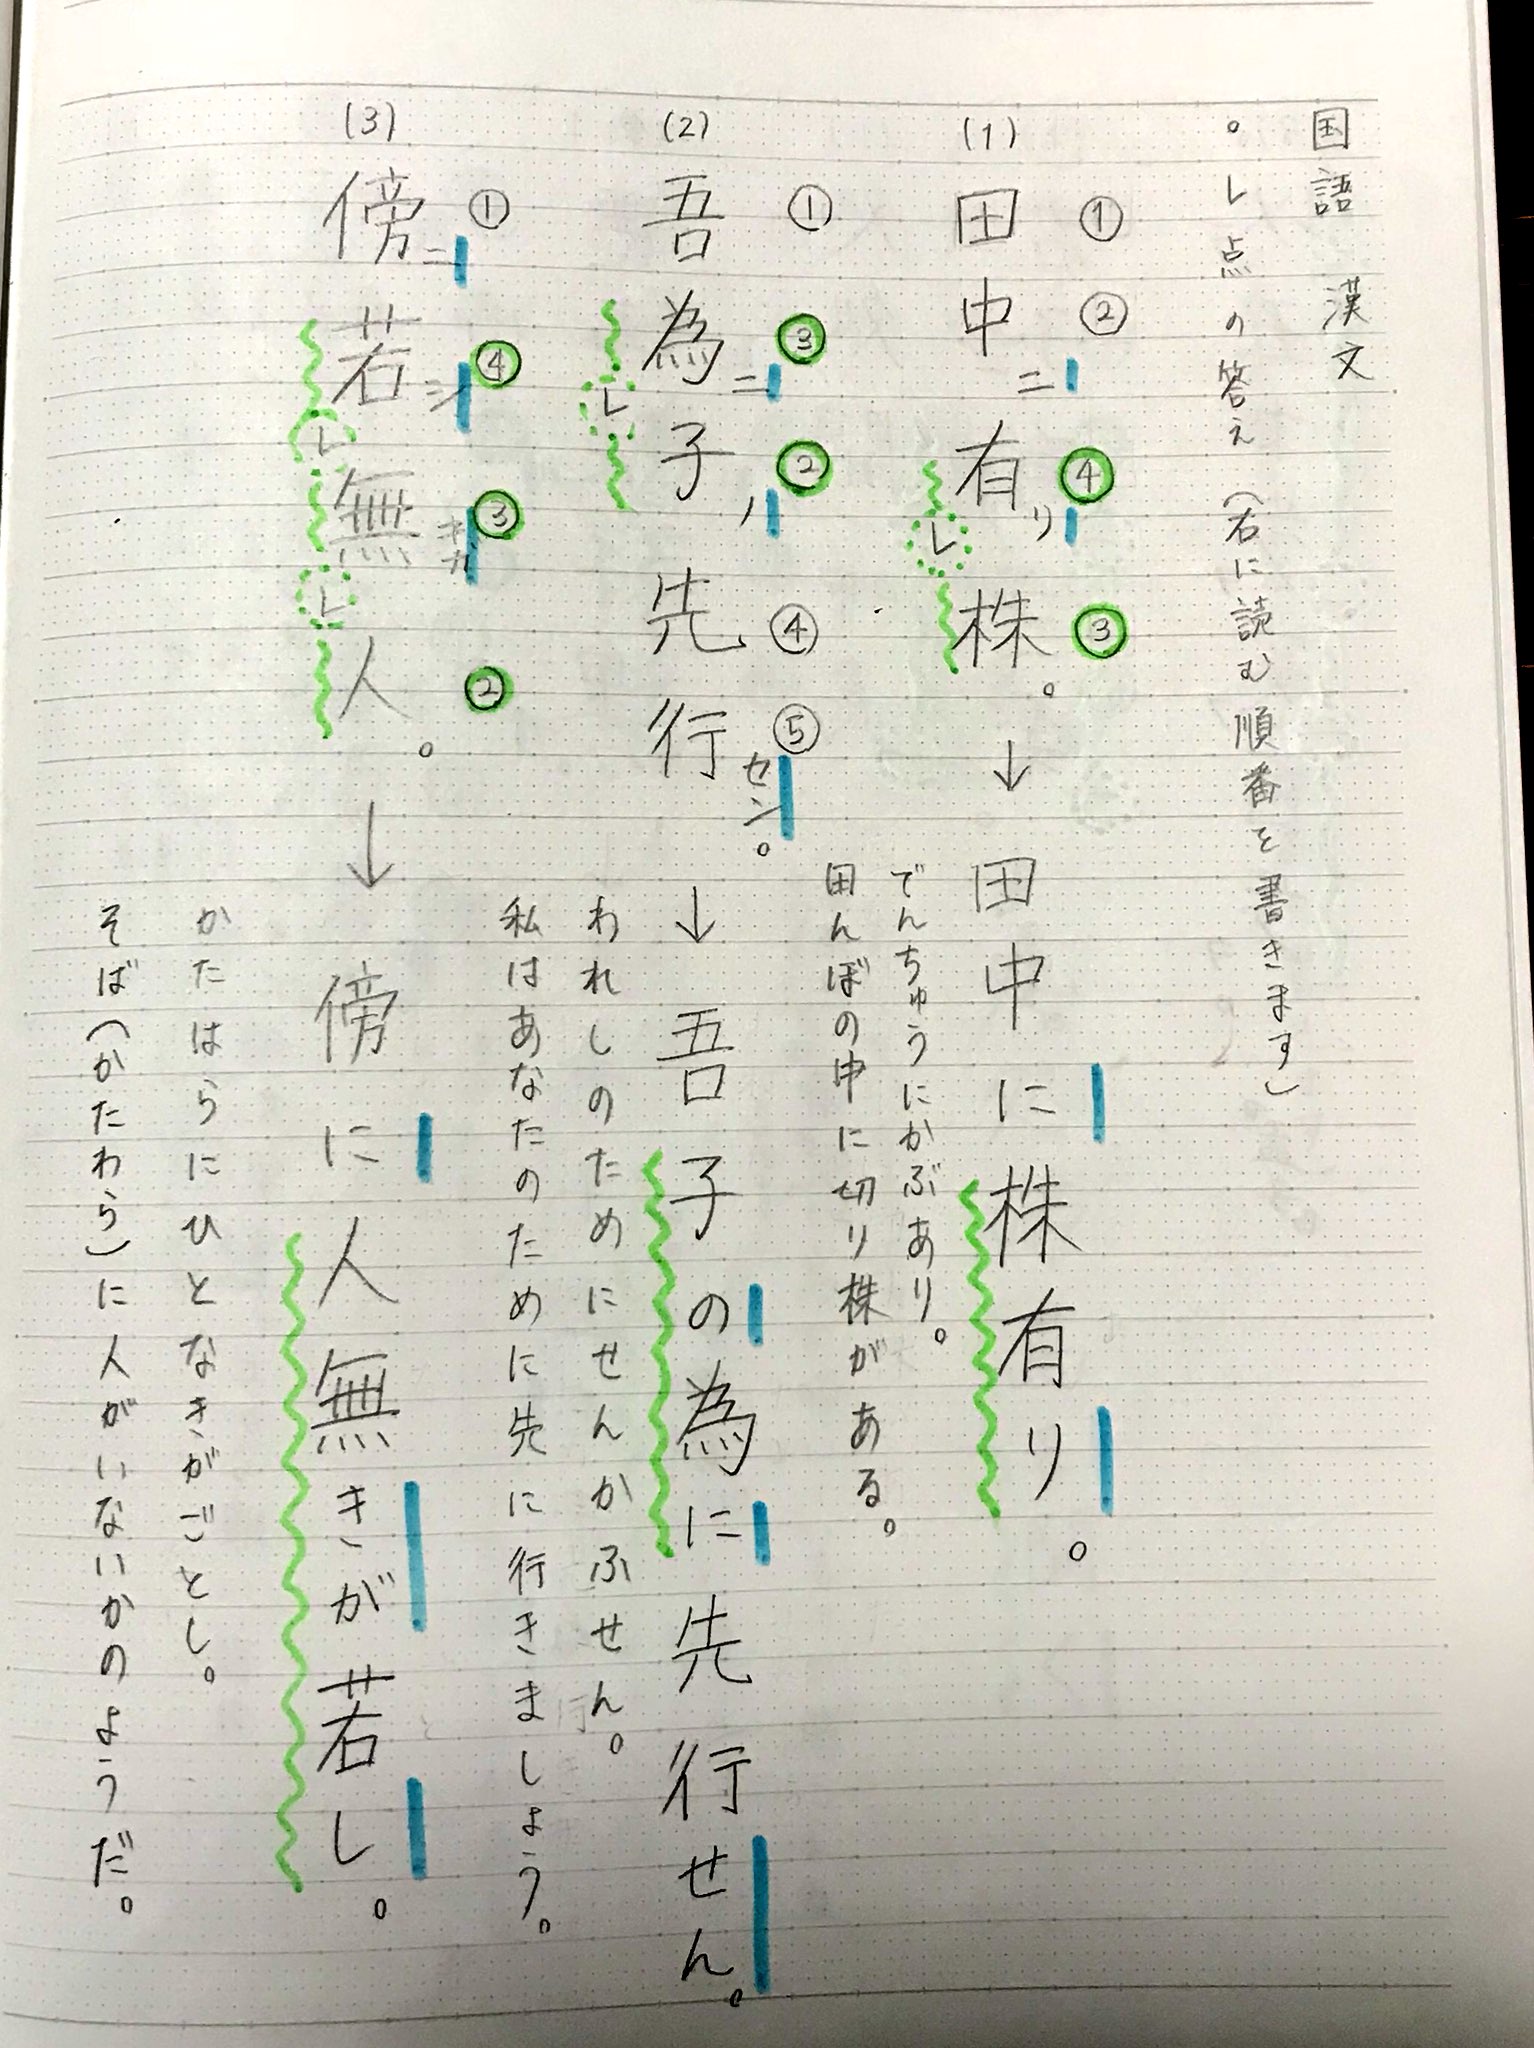 国語 漢文
。レ点の答え（右に読む順番を書きます）
(1) 田①中②ニ有④リレ株③。→田中に株有り。
でんちゅうにかぶあり。
田んぼの中に切り株がある。
(2) 吾①為③ニレ子②ノ先④行⑤セン。→吾子の為に先行せん。
われしのためにせんかふせん。
私はあなたのために先に行きましょう。
(3) 傍①ニ若④シレ無③キガレ人②。→傍に人無きが若し。
かたはらにひとなきがごとし。
そば（かたわら）に人がいないかのようだ。